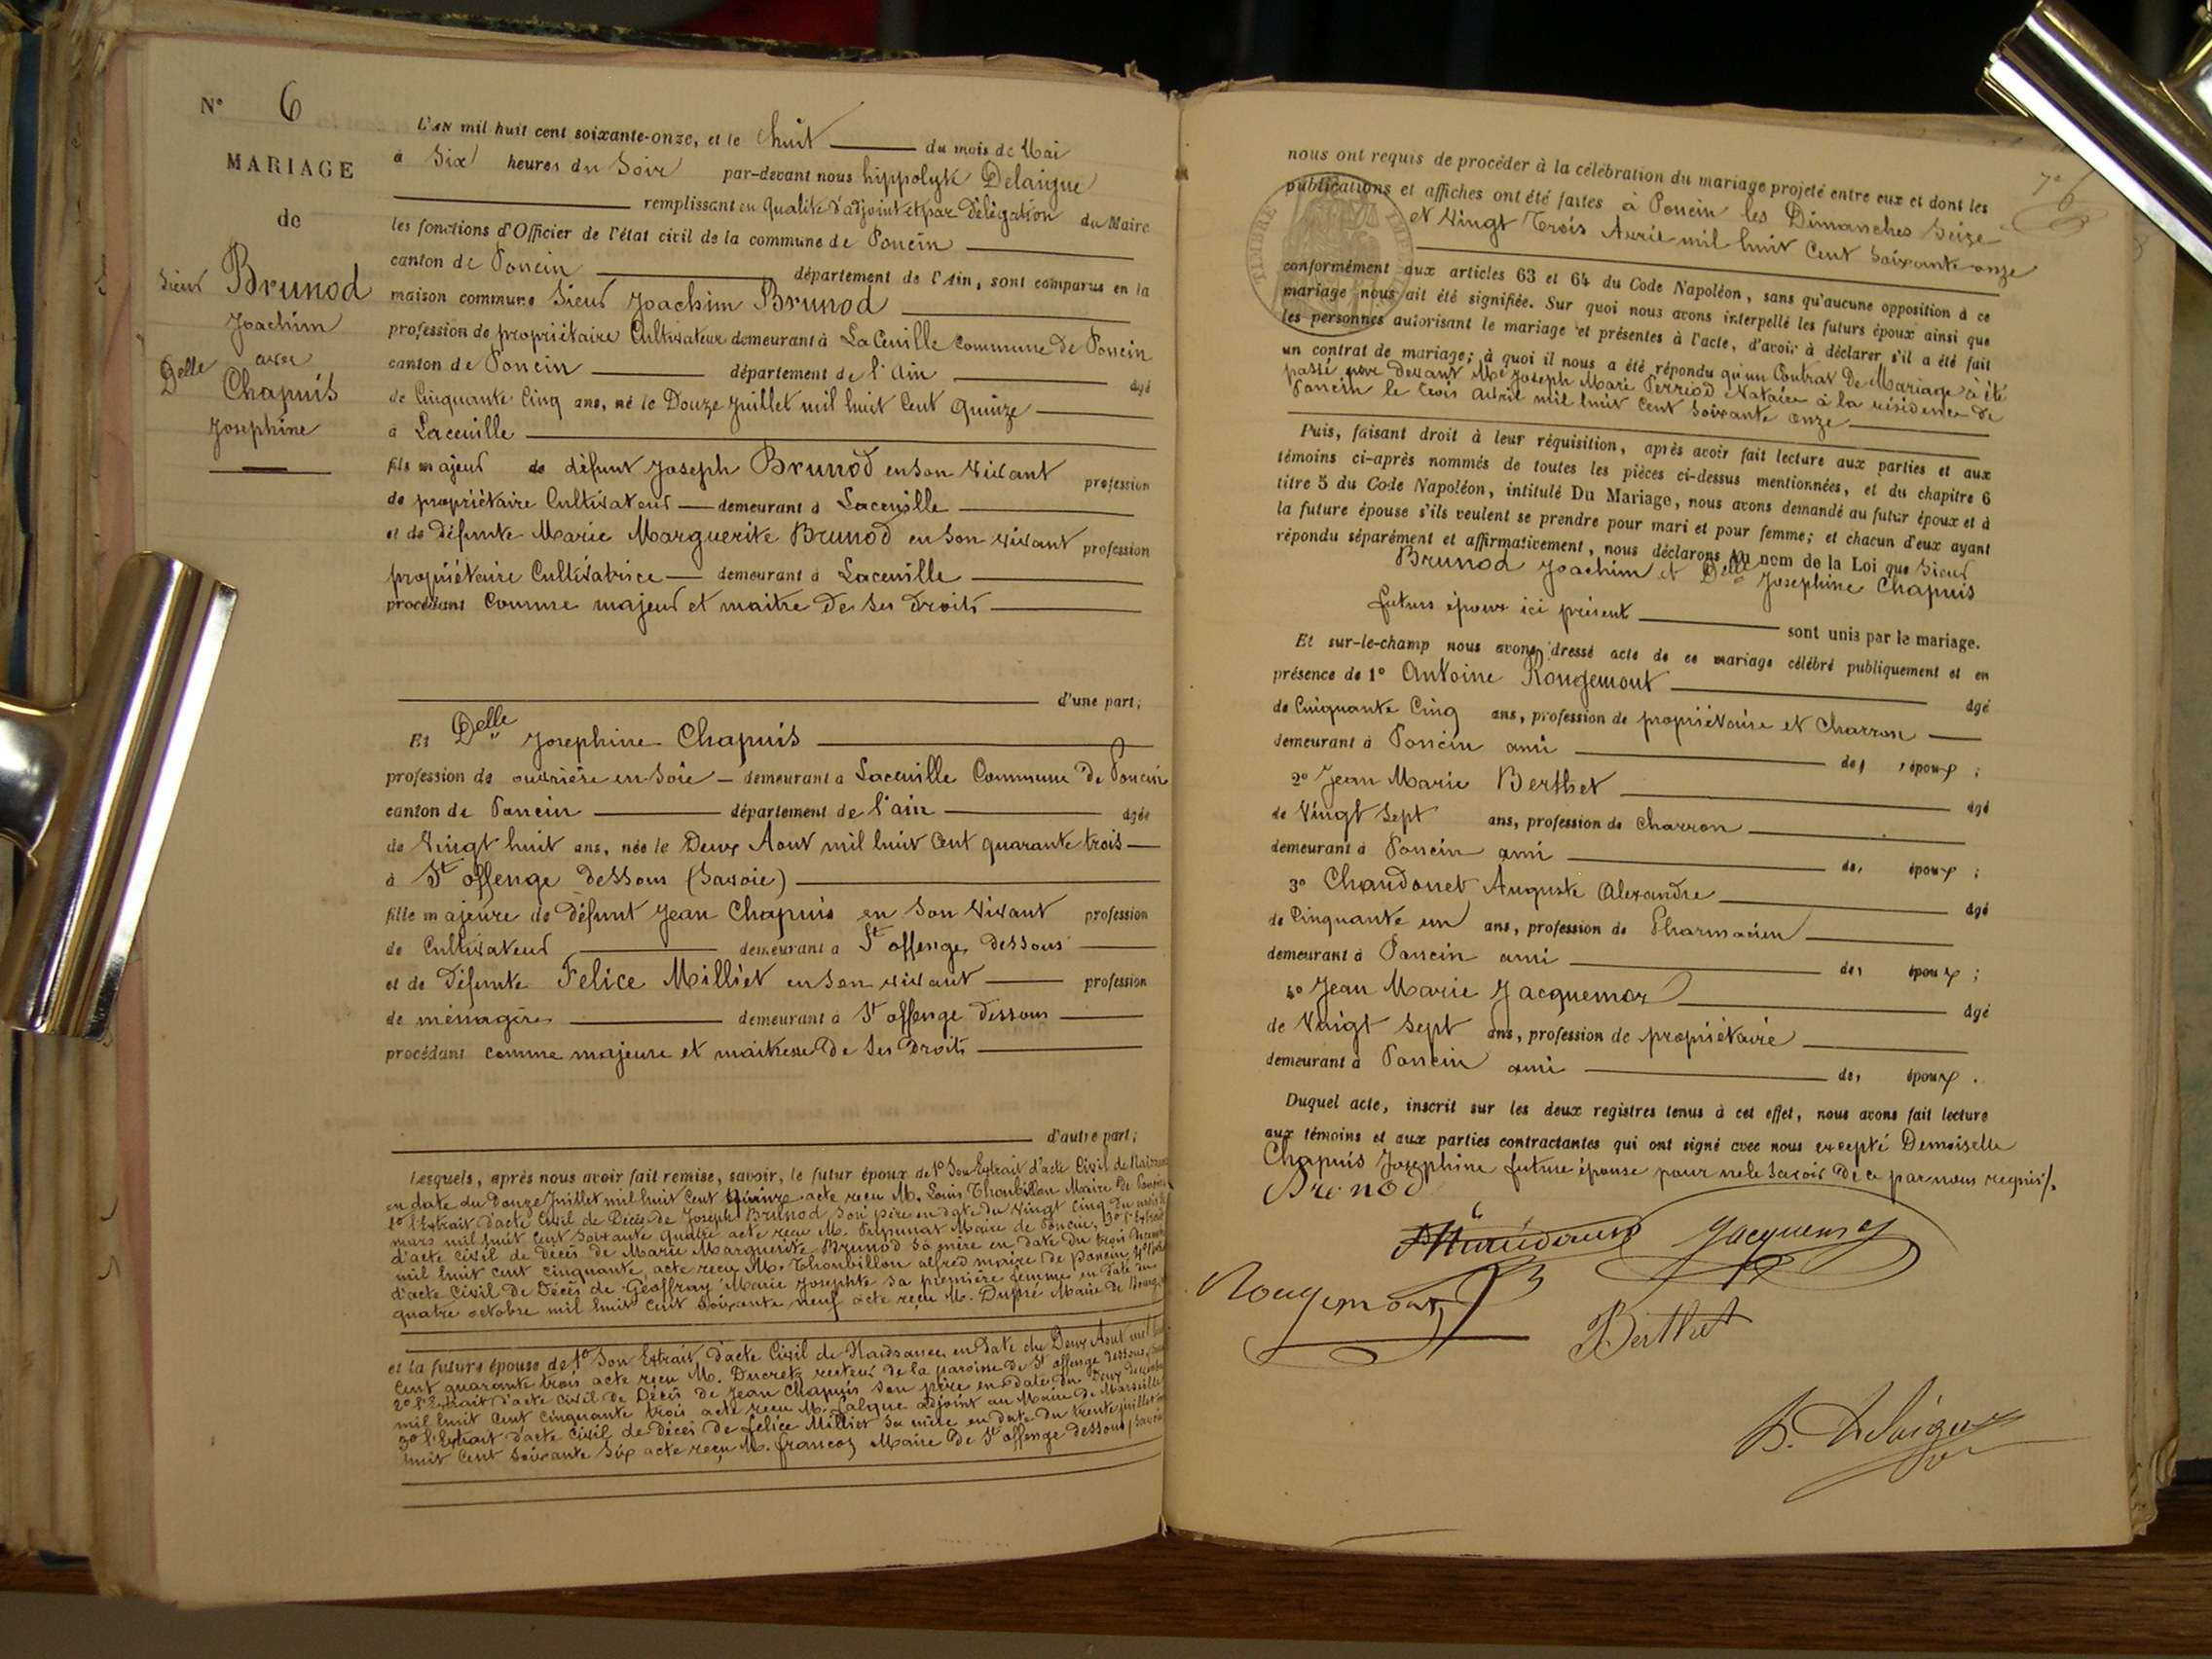 N° 6
MARIAGE
de
Sieur Brunod
Joachim
avec
Delle Chapuis
Josephine
L'AN mil huit cent soixante-onze, et le huit du mois de Mai
à Six heures du Soir par-devant nous hippolyte Delaigue
remplissant en qualité d'adjoint et par délégation du Maire
les fonctions d'Officier de l'état civil de la commune de Poncin
canton de Poncin département de l'Ain, sont comparus en la
maison commune Sieur Joachim Brunod
profession de propriétaire Cultivateur demeurant à La Ceuille Commune de Poncin
canton de Poncin département de l'Ain âgé
de Cinquante Cinq ans, né le Douze Juillet mil huit Cent Quinze
à Laceuille
fils majeur de défunt Joseph Brunod en son vivant profession
de propriétaire Cultivateur demeurant à Laceuille
et de défunte Marie Marguerite Brunod en son vivant profession
propriétaire Cultivatrice demeurant à Laceuille
procédant Comme majeur et maitre de ses droits
d'une part;
Et Delle Josephine Chapuis
profession de ouvrière en Soie demeurant à Laceuille Commune de Poncin
canton de Poncin département de l'ain âgée
de Vingt huit ans, née le Deux Aout mil huit Cent quarante trois
à St offenge dessous (Savoie)
fille majeure de défunt Jean Chapuis en son vivant profession
de Cultivateur demeurant à St offenge dessous
et de défunte Felice Milliet en son vivant profession
de ménagère demeurant à St offenge dessous
procédant comme majeure et maitresse de ses droits
d'autre part;
Lesquels, après nous avoir fait remise, savoir, le futur époux de 1° Son Extrait d'acte Civil de Naissance
en date du Douze Juillet mil huit Cent Quinze acte reçu M. Louis Thoubillon Maire de Poncin
2° l'Extrait d'acte Civil de Décès de Joseph Brunod, son père en date du vingt Cinq du mois de
mars mil huit Cent Soixante quatre acte reçu M. Maire de Poncin, 3° l'Extrait
d'acte Civil de décès de Marie Marguerite Brunod sa mère en date du trois
mil huit cent cinquante, acte reçu M. Thoubillon alfred maire de poncin, 4°
d'acte Civil de Décès de Geoffray Marie Josephte sa première femme en date du
quatre octobre mil huit Cent Soixante neuf acte reçu M. Dupré Maire de
et la future épouse de 1° Son Extrait d'acte Civil de Naissance en date du Deux Aout mil huit
Cent quarante trois acte reçu M. Ducretz recteur de la paroisse de St offenge dessous,
2° l'Extrait d'acte Civil de Décès de Jean Chapuis son père en date du Deux
mil huit Cent Cinquante trois acte reçu M. adjoint au Maire de Marseille
3° l'Extrait d'acte Civil de décès de felice Milliet sa mère en date du trente juillet
huit Cent Soixante Six acte reçu M. francoz Maire de St offenge dessous
nous ont requis de procéder à la célébration du mariage projeté entre eux et dont les
publications et affiches ont été faites à Poncin les Dimanches Seize
et Vingt Trois Avril mil huit Cent Soixante onze
conformément aux articles 63 et 64 du Code Napoléon, sans qu'aucune opposition à ce
mariage nous ait été signifiée. Sur quoi nous avons interpellé les futurs époux ainsi que
les personnes autorisant le mariage et présentes à l'acte, d'avoir à déclarer s'il a été fait
un contrat de mariage; à quoi il nous a été répondu qu'un Contrat De Mariage à été
passé devant Me Joseph Marie Perriod Notaire à la résidence de
Poncin le trois Avril mil huit Cent Soixante onze
Puis, faisant droit à leur réquisition, après avoir fait lecture aux parties et aux
témoins ci-après nommés de toutes les pièces ci-dessus mentionnées, et du chapitre 6
titre 5 du Code Napoléon, intitulé Du Mariage, nous avons demandé au futur époux et à
la future épouse s'ils veulent se prendre pour mari et pour femme; et chacun d'eux ayant
répondu séparément et affirmativement, nous déclarons au nom de la Loi que Sieur
Brunod Joachim et Delle Josephine Chapuis
futurs époux ici présent
sont unis par le mariage.
Et sur-le-champ nous avons dressé acte de ce mariage célébré publiquement et en
présence de 1° Antoine Rougemont âgé
de Cinquante Cinq ans, profession de propriétaire et Charron
demeurant à Poncin ami des époux ;
2° Jean Marie Berthet âgé
de Vingt Sept ans, profession de Charron
demeurant à Poncin ami des époux ;
3° Chaudouet Auguste Alexandre âgé
de Cinquante un ans, profession de Pharmacien
demeurant à Poncin ami des époux ;
4° Jean Marie Jacquemoz âgé
de Vingt Sept ans, profession de propriétaire
demeurant à Poncin ami des époux.
Duquel acte, inscrit sur les deux registres tenus à cet effet, nous avons fait lecture
aux témoins et aux parties contractantes qui ont signé avec nous excepté Demoiselle
Chapuis Josephine future épouse pour ne le savoir de ce par nous requis/.
Brunod
Rougemont
Berthet